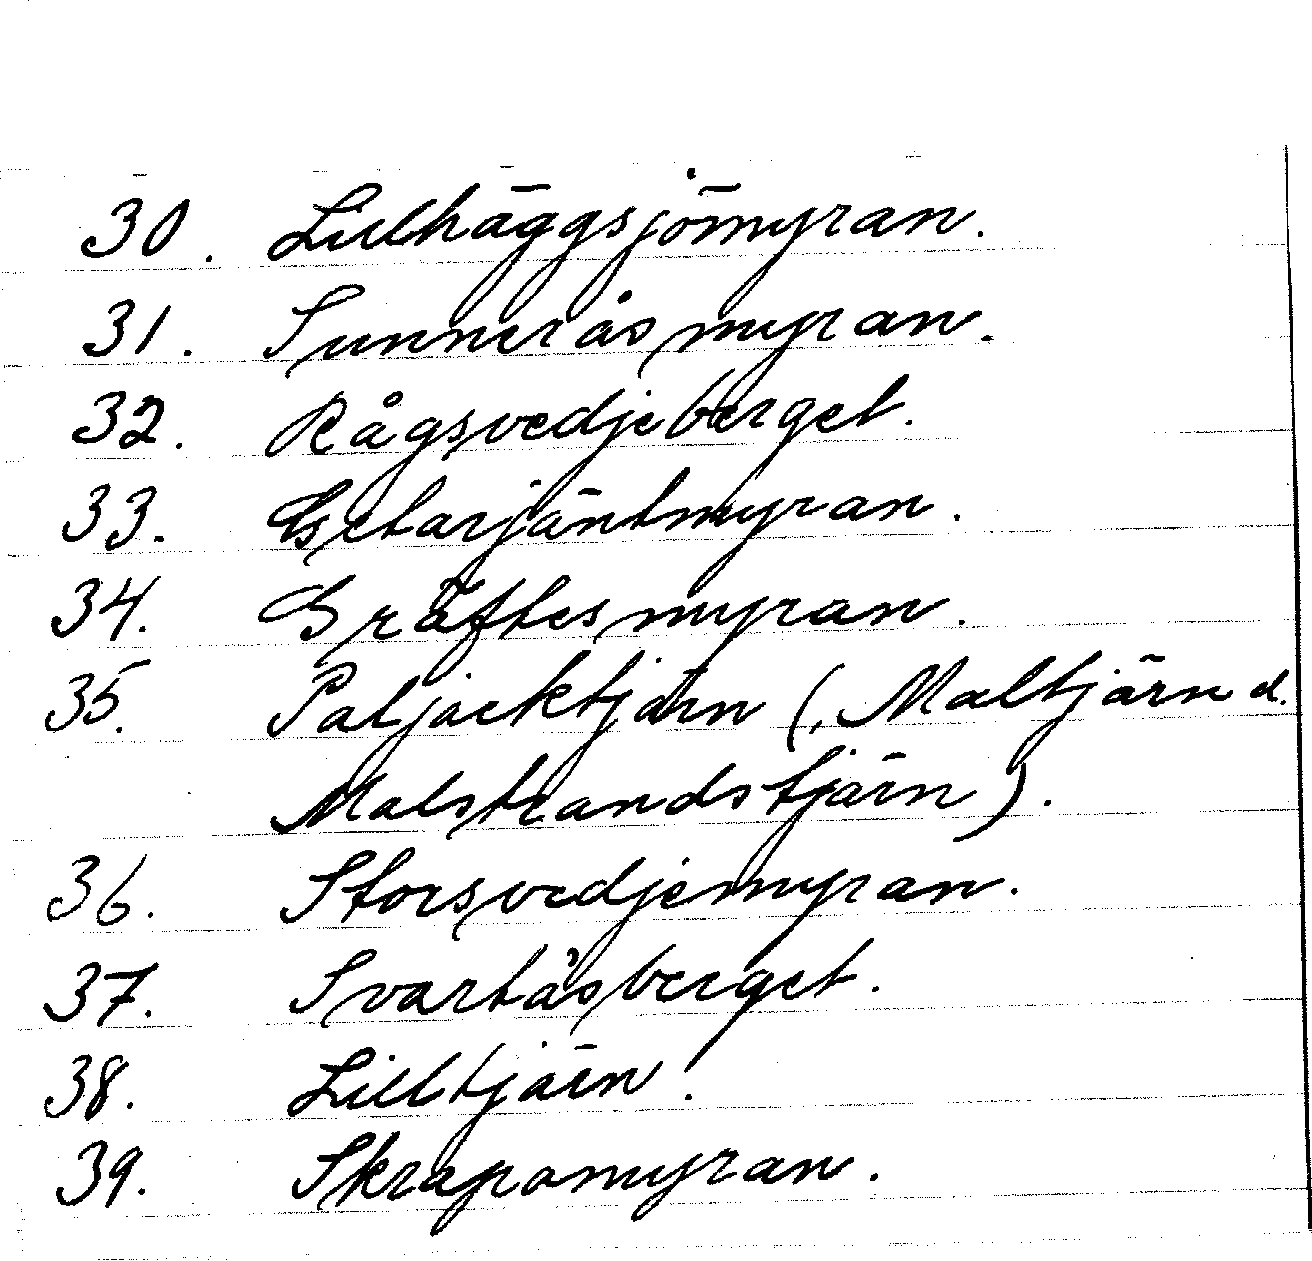 30. Lillhäggsjömyran.
31. Sunneråsmyran.
32. Rågsvedjeberget.
33. Getarjäntmyran.
34. Gräftesmyran.
35. Paljacktjärn (, Maltjärn d.
Malstrandstjärn).
36. Storsvedjemyran.
37. Svartåsberget.
38. Lilltjärn.
39. Skrapamyran.